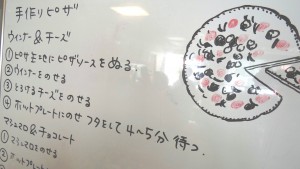 手作りピザ
ウィンナー&チーズ
①ピザ生地にピザソースをぬる
②ウィンナーをのせる
③とろけるチーズをのせる
④ホットプレートにのせフタをして4~5分待つ。
マシュマロ&チョコレート
①マシュマロをのせる
②ホットプレート